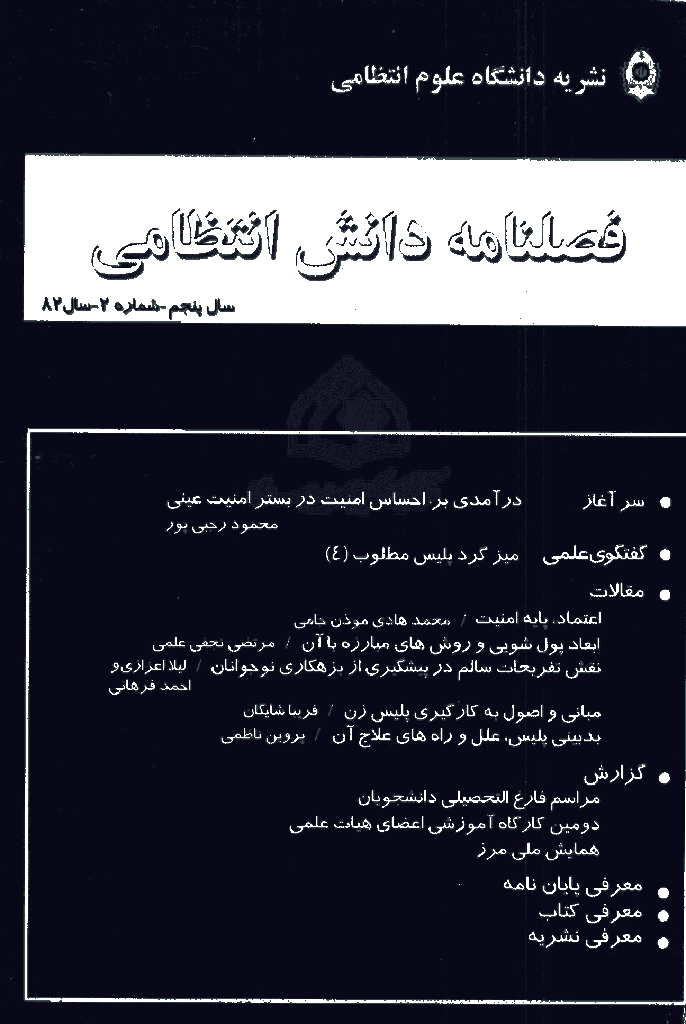 نشریه دانشگاه علوم انتظامی
فصلنامه دانش انتظامی
سال پنجم-شماره ۲-سال ۸۲
سر آغاز درآمدی بر احساس امنیت در بستر امنیت عینی
محمود رجبی پور
گفتگوی علمی میز گرد پلیس مطلوب (٤)
مقالات
اعتماد، پایه امنیت / محمد هادی موذن جامی
ابعاد پول شویی و روش های مبارزه با آن / مرتضی نجفی علمی
نقش تفریحات سالم در پیشگیری از بزهکاری نوجوانان / لیلا اعزازی و
احمد فرهانی
مبانی و اصول به کارگیری پلیس زن / فریبا شایگان
بدبینی پلیس، علل و راه های علاج آن / پروین ناظمی
گزارش
مراسم فارغ التحصیلی دانشجویان
دومین کارگاه آموزشی اعضای هیات علمی
همایش ملی مرز
معرفی پایان نامه
معرفی کتاب
معرفی نشریه